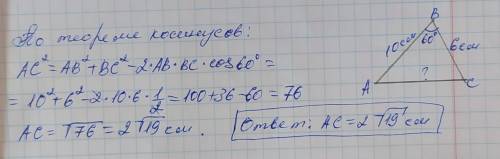 По теореме косинусов:
AC² = AB² + BC² - 2·AB·BC·cos60° =
= 10² + 6² - 2·10·6·1/2 = 100 + 36 - 60 = 76
AC = √76 = 2√19 см.
Ответ: AC = 2√19 см
B
60°
10 см
6 см
A
?
C